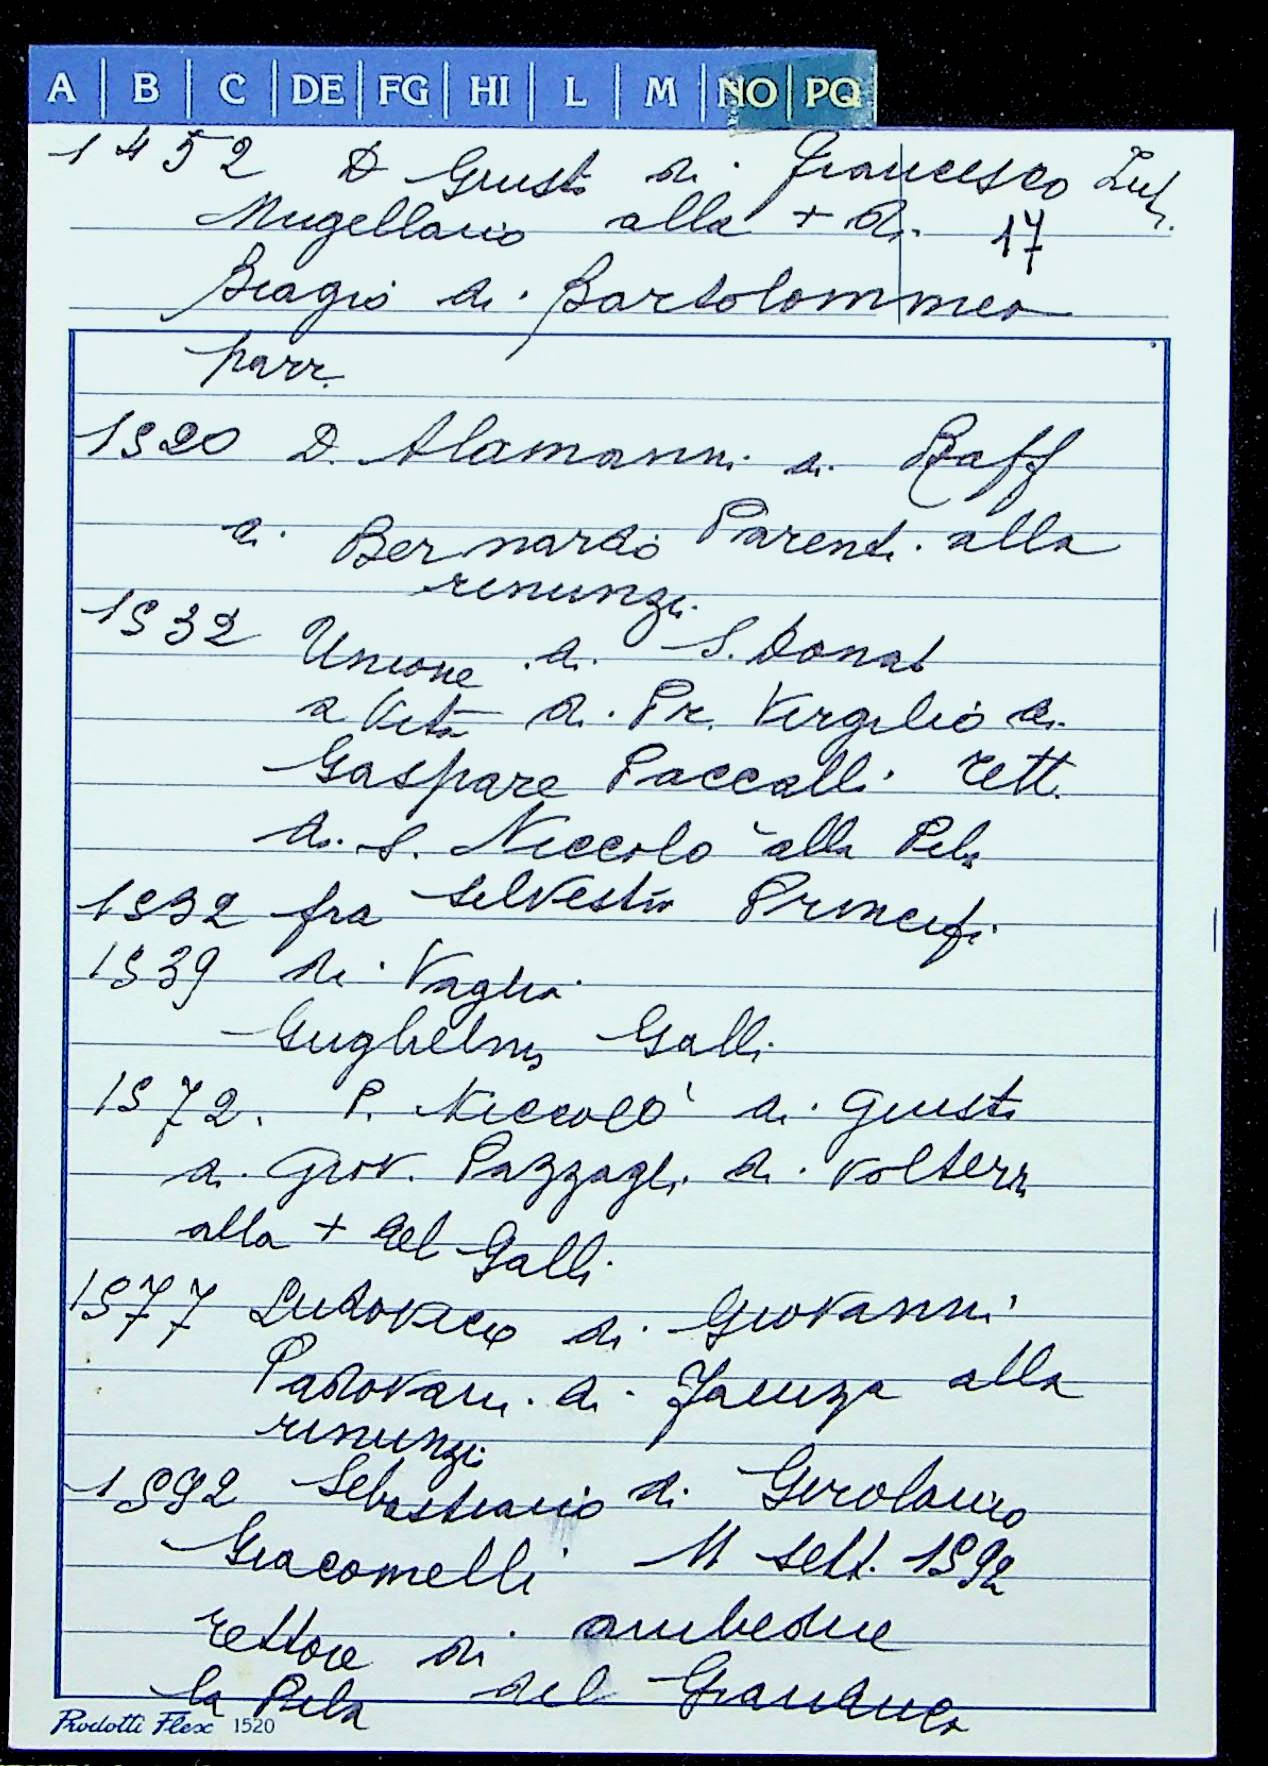 A B C DE FG HI L M NO PQ
1452 D Giusto di Francesco
Mugellano alla + di 17
Biagio di Bartolommeo
parr.
1520 D. Alamanni di Raff
di Bernardo Parenti alla
renunzi.
1532 Unione di S. Donat
a Vita di Pr. Virgilio di
Gaspare Paccalli rett.
di S. Niccolo alla Pila
1532 fra Selvestro Principi
1539 di Vaglia
Guglielmo Galli
1572. P. Niccolò di Giusto
di Giov. Pazzagli di Volterra
alla + del Galli
1577 Ludovico di Giovanni
Padovani di Faenza alla
renunzi
1592 Sebastiano di Girolamo
Giacomelli 11 sett. 1592
rettore di ambedue
la Pila del Granduca
Prodotti Flex 1520